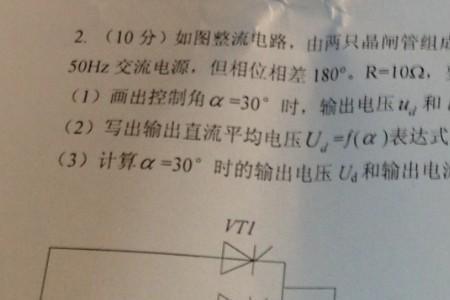 2. （10 分）如图整流电路，由两只晶闸管组成
50Hz 交流电源，但相位相差 180°。R=10Ω，
（1）画出控制角 α =30° 时，输出电压 u_d 和
（2）写出输出直流平均电压 U_d =f(α )表达式
（3）计算 α =30° 时的输出电压 U_d 和输出电流
VT1